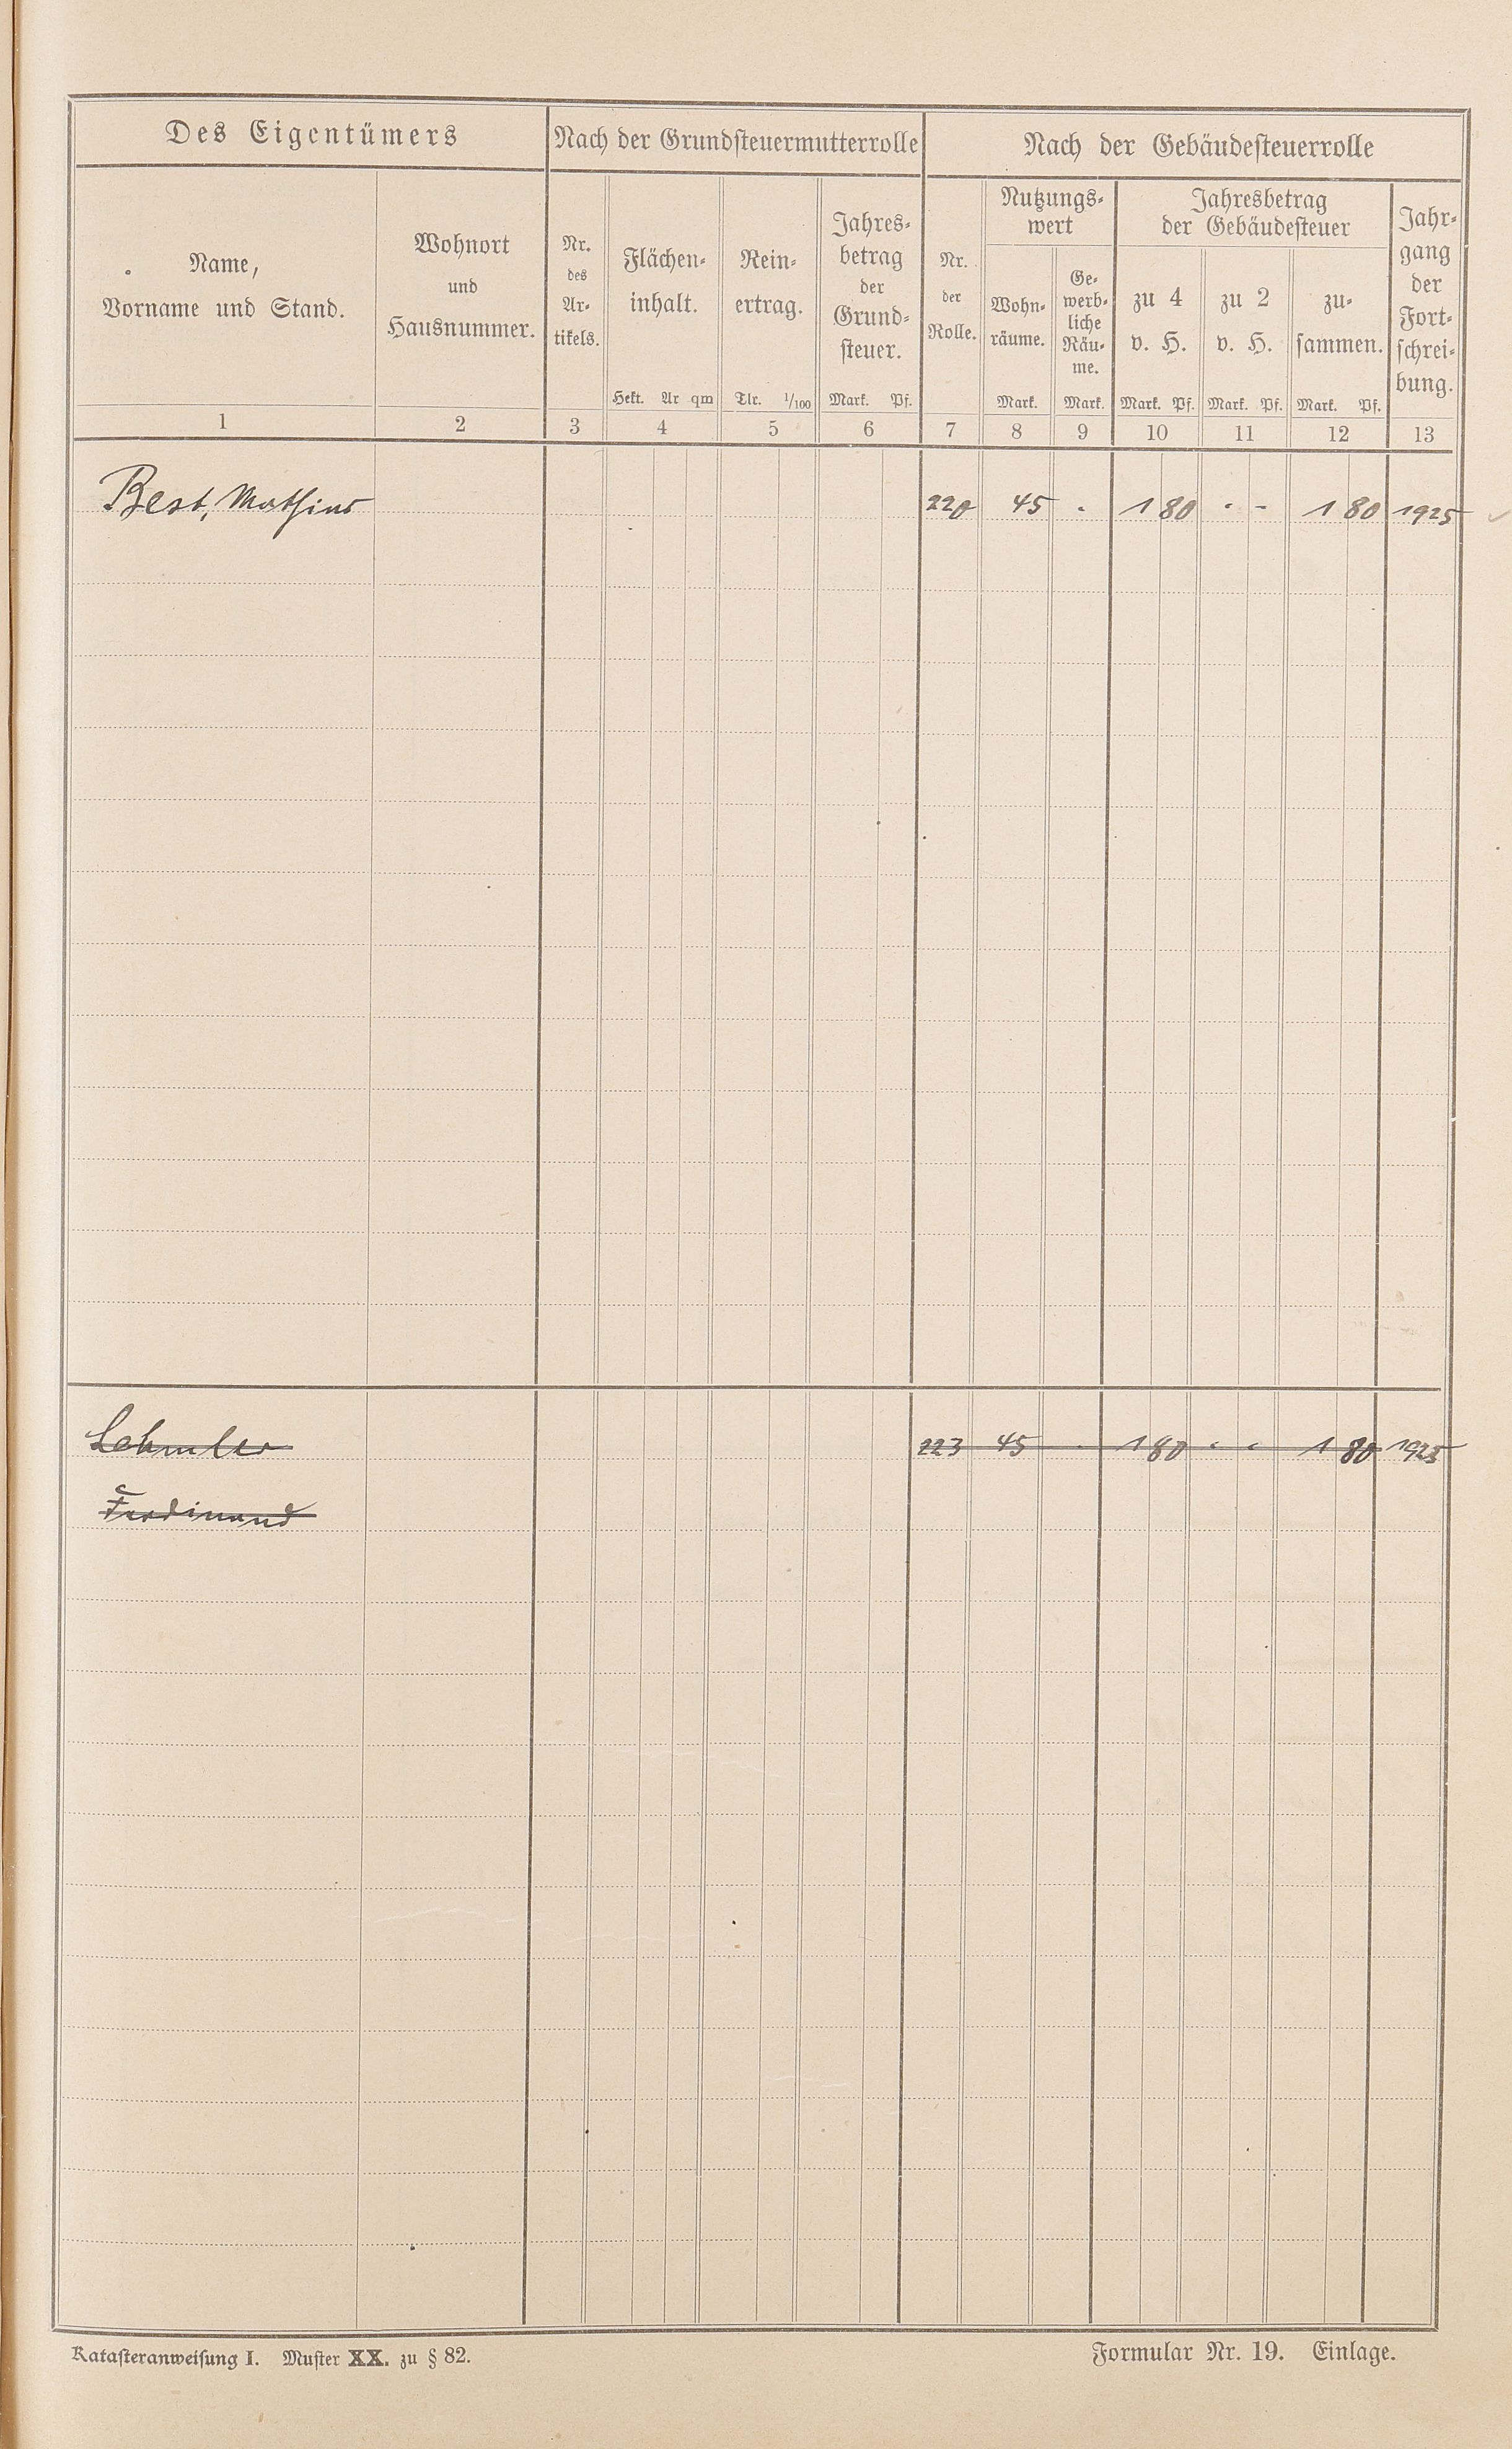 Des Eigentümers
Nach der Grundsteuermutterrolle
Nach der Gebäudesteuerrolle
Name,
Vorname und Stand.
Wohnort
und
Hausnummer.
Nr.
des
Ar-
tikels.
Flächen-
inhalt.
Hekt. Ar qm
Rein-
ertrag.
Tlr. 1/100
Jahres-
betrag
der
Grund-
steuer.
Mark. Pf.
Nr.
der
Rolle.
Nutzungs-
wert
Wohn-
räume.
Mark.
Ge-
werb-
liche
Räu-
me.
Mark.
Jahresbetrag
der Gebäudesteuer
zu 4
v. H.
Mark. Pf.
zu 2
v. H.
Mark. Pf.
zu-
sammen.
Mark. Pf.
Jahr-
gang
der
Fort-
schrei-
bung.
1 2 3 4 5 6 7 8 9 10 11 12 13
Best, Mathias 220 45 - 1 80 - - 1 80 1925
Lehmler 223 45 - 1 80 - - 1 80 1925
Ferdinand
Katasteranweisung I. Muster XX. zu § 82.
Formular Nr. 19. Einlage.